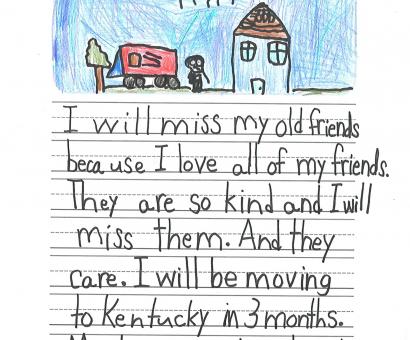 I will miss my old friends
because I love all of my friends.
They are so kind and I will
miss them. And they
care. I will be moving
to Kentucky in 3 months.